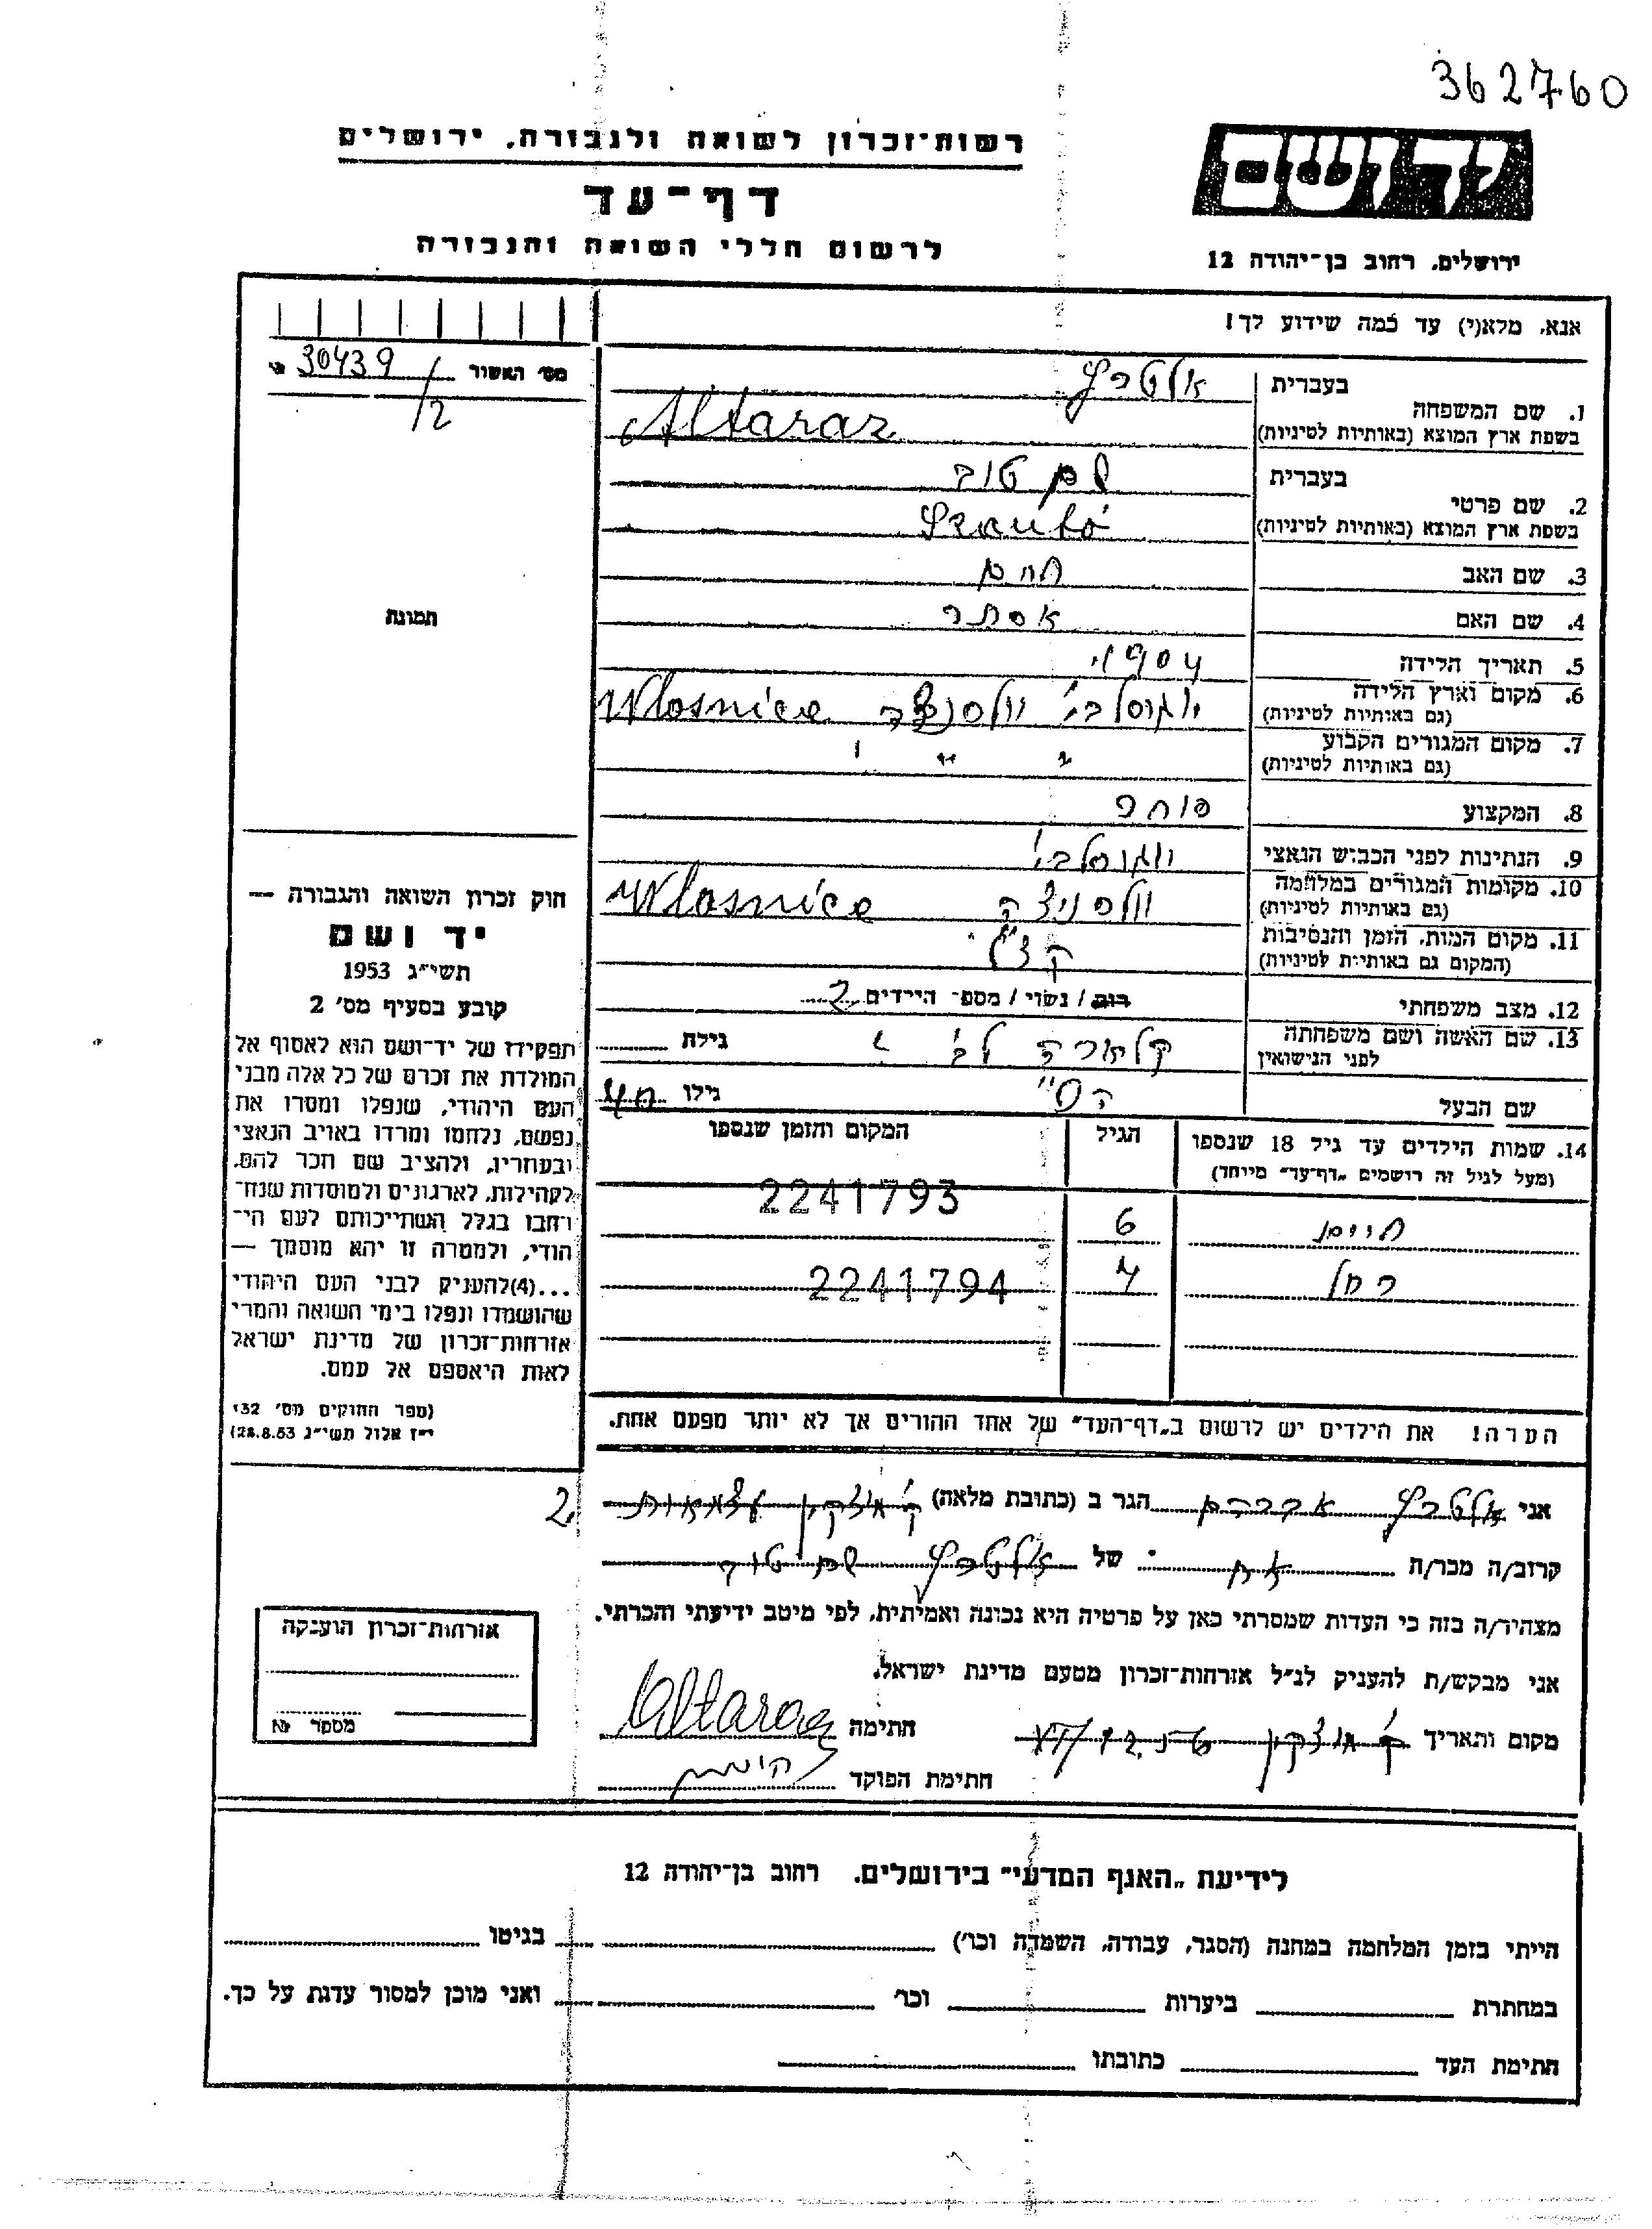 362760
יד ושם
ירושלים. רחוב בן־יהודה 12
רשות־זכרון לשואה ולגבורה. ירושלים
דף־עד
לרשום חללי השואה והגבורה
אנא, מלא(י) עד כמה שידוע לך!
מס׳ האשור 30439 №
/2
1. שם המשפחה
בעברית אלטרץ
בשפת ארץ המוצא (באותיות לטיניות) Altaraz
2. שם פרטי
בעברית שם טוב
בשפת ארץ המוצא (באותיות לטיניות)
3. שם האב חיים
4. שם האם אסתר
5. תאריך הלידה 1904
6. מקום וארץ הלידה
(גם באותיות לטיניות) יוגוסלבי׳ וולסניצה Wlosnice
7. מקום המגורים הקבוע
(גם באותיות לטיניות) " " "
8. המקצוע סוחר
9. הנתינות לפני הכבוש הנאצי יוגוסלבי׳
10. מקומות המגורים במלחמה
(גם באותיות לטיניות) וולסניצה Wlasnice
11. מקום המות, הזמן והנסיבות
(המקום גם באותיות לטיניות)
12. מצב משפחתי רוק / נשוי / מספר הילדים 2
13. שם האשה ושם משפחתה
לפני הנישואין לוי גילה
שם הבעל גילו
14. שמות הילדים עד גיל 18 שנספו
(מעל לגיל זה רושמים „דף־עד״ מייחד)
הגיל
המקום והזמן שנספו
חיים 6 2241793
רחל 4 2241794
הערה! את הילדים יש לרשום ב„דף־העד״ של אחד ההורים אך לא יותר מפעם אחת.
תמונה
חוק זכרון השואה והגבורה —
יד ושם
תשי״ג 1953
קובע בסעיף מס׳ 2
תפקידו של יד־ושם הוא לאסוף אל
המולדת את זכרם של כל אלה מבני
העם היהודי, שנפלו ומסרו את
נפשם, נלחמו ומרדו באויב הנאצי
ובעוזריו, ולהציב שם וזכר להם,
לקהילות, לארגונים ולמוסדות שנח־
רחבו בגלל השתייכותם לעם הי־
הודי, ולמטרה זו יהא מוסמך —
...(4)להעניק לבני העם היהודי
שהושמדו ונפלו בימי השואה והמרי
אזרחות־זכרון של מדינת ישראל
לאות היאספם אל עמם.
(ספר החוקים מס׳ 132
י״ז אלול תשי״ג 28.8.53)
אני אלטרץ אברהם הגר ב (כתובת מלאה) ק׳ מוצקין עצמאות
2
קרוב/ה מכר/ה אח של אלטרץ שם טוב
מצהיר/ה בזה כי העדות שמסרתי כאן על פרטיה היא נכונה ואמיתית, לפי מיטב ידיעתי והכרתי.
אני מבקש/ת להעניק לנ״ל אזרחות־זכרון מטעם מדינת ישראל.
מקום ותאריך ק׳ מוצקין חתימה Altaraz
חתימת הפוקד
אזרחות־זכרון הוענקה
מספר №
לידיעת „האגף המדעי״ בירושלים. רחוב בן־יהודה 12
הייתי בזמן המלחמה במחנה (הסגר, עבודה, השמדה וכו׳) בגיטו
במחתרת ביערות וכו׳ ואני מוכן למסור עדות על כך.
חתימת העד כתובתו